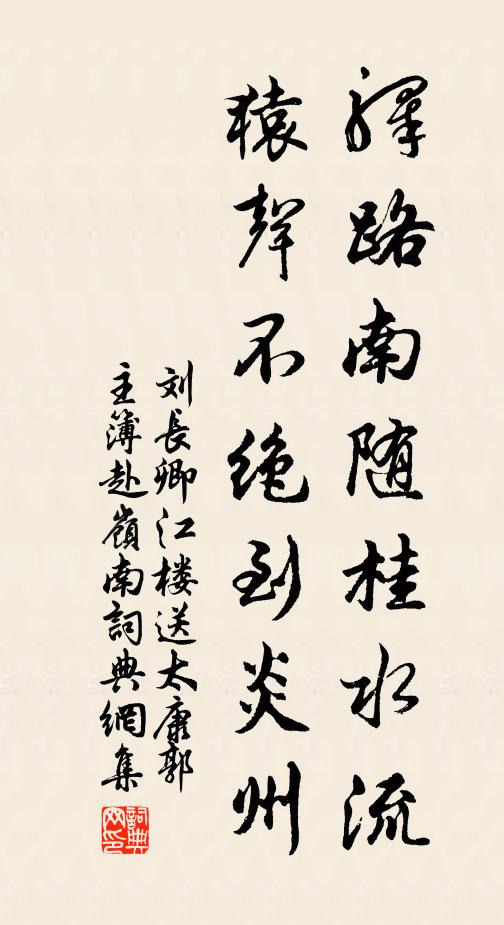 驛路南随桂水流
猿聲不絶到炎州
刘長卿江楼送太康郭
主簿赴嶺南詞典網集
詞典
网印